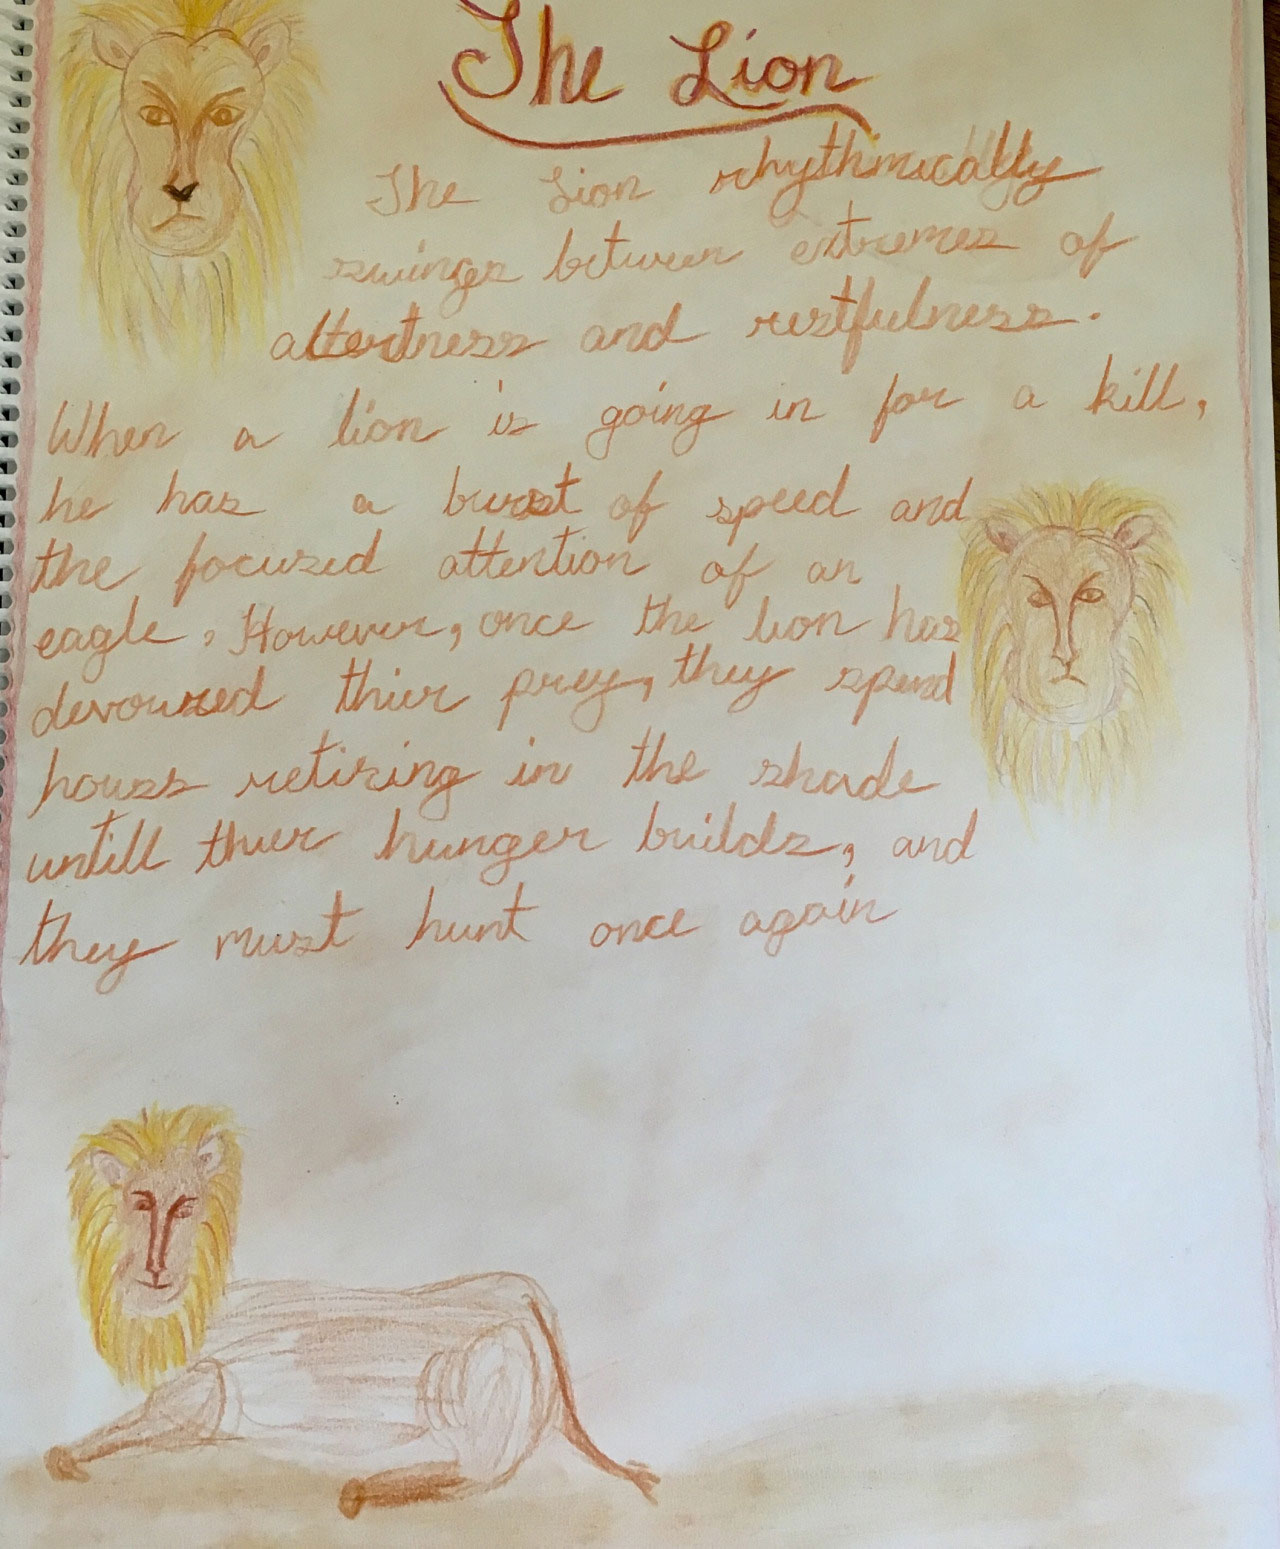 The Lion
The Lion rhythmically
swings between extremes of
alertness and restfulness.
When a lion is going in for a kill,
he has a burst of speed and
the focused attention of an
eagle. However, once the lion has
devoured thier prey, they spend
hours retiring in the shade
untill thier hunger builds, and
they must hunt once again